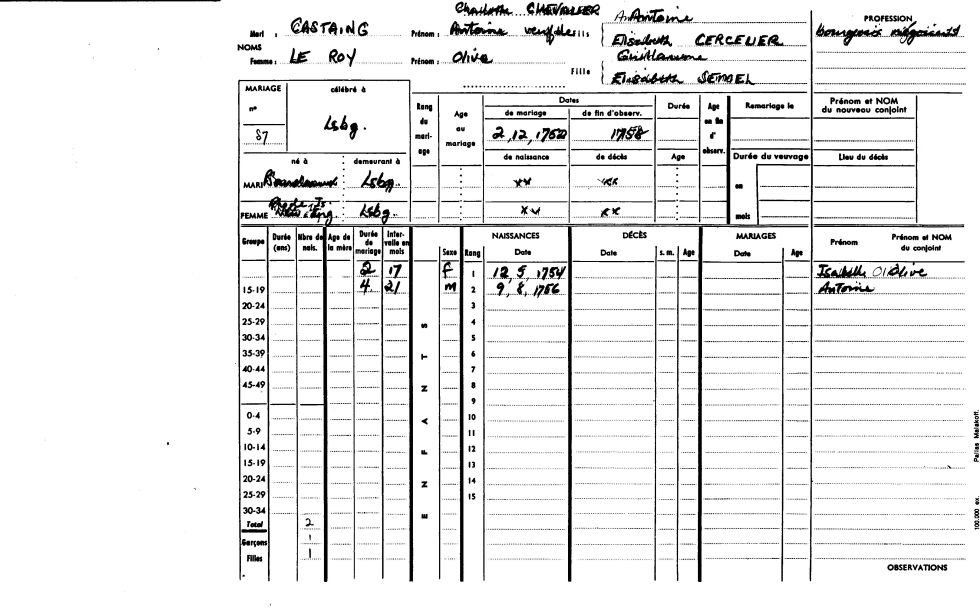 Charlotte CHEVALIER
A. Antoine
PROFESSION
Mari : CASTAING Prénom : Antoine veuf de fils Elisabeth CERCELIER bourgeois négociant
NOMS Guillaume
Femme : LE ROY Prénom : Olive Fille
Elisabeth
MARIAGE célébré à Rang du mariage Age au mariage Dates Durée Age en fin d' observ. Remariage le Prénom et NOM du nouveau conjoint
n° de mariage de fin d'observ.
87 Lsbg. 2, 12, 1752 1758
de naissance de décès Age Durée du veuvage Lieu du décès
né à demeurant à
MARI Lsbg. xx xx en
FEMME Lsbg. xx xx mois
Groupe Durée (ans) Nbre de nais. Age de la mère Durée de mariage Intervalle en mois Sexe Rang NAISSANCES Date DÉCÈS Date s. m. Age MARIAGES Date Age Prénom Prénom et NOM du conjoint
2 17 f 1 12, 5, 1754 Isabelle Olive
15-19 4 21 m 2 9, 8, 1756 Antoine
20-24 3
25-29 4
30-34 5
35-39 6
40-44 7
45-49 8
9
0-4 10
5-9 11
10-14 12
15-19 13
20-24 14
25-29 15
30-34
ENFANTS
Total 2
Garçons 1
Filles 1
OBSERVATIONS
100.000 ex. Pallas Malakoff.